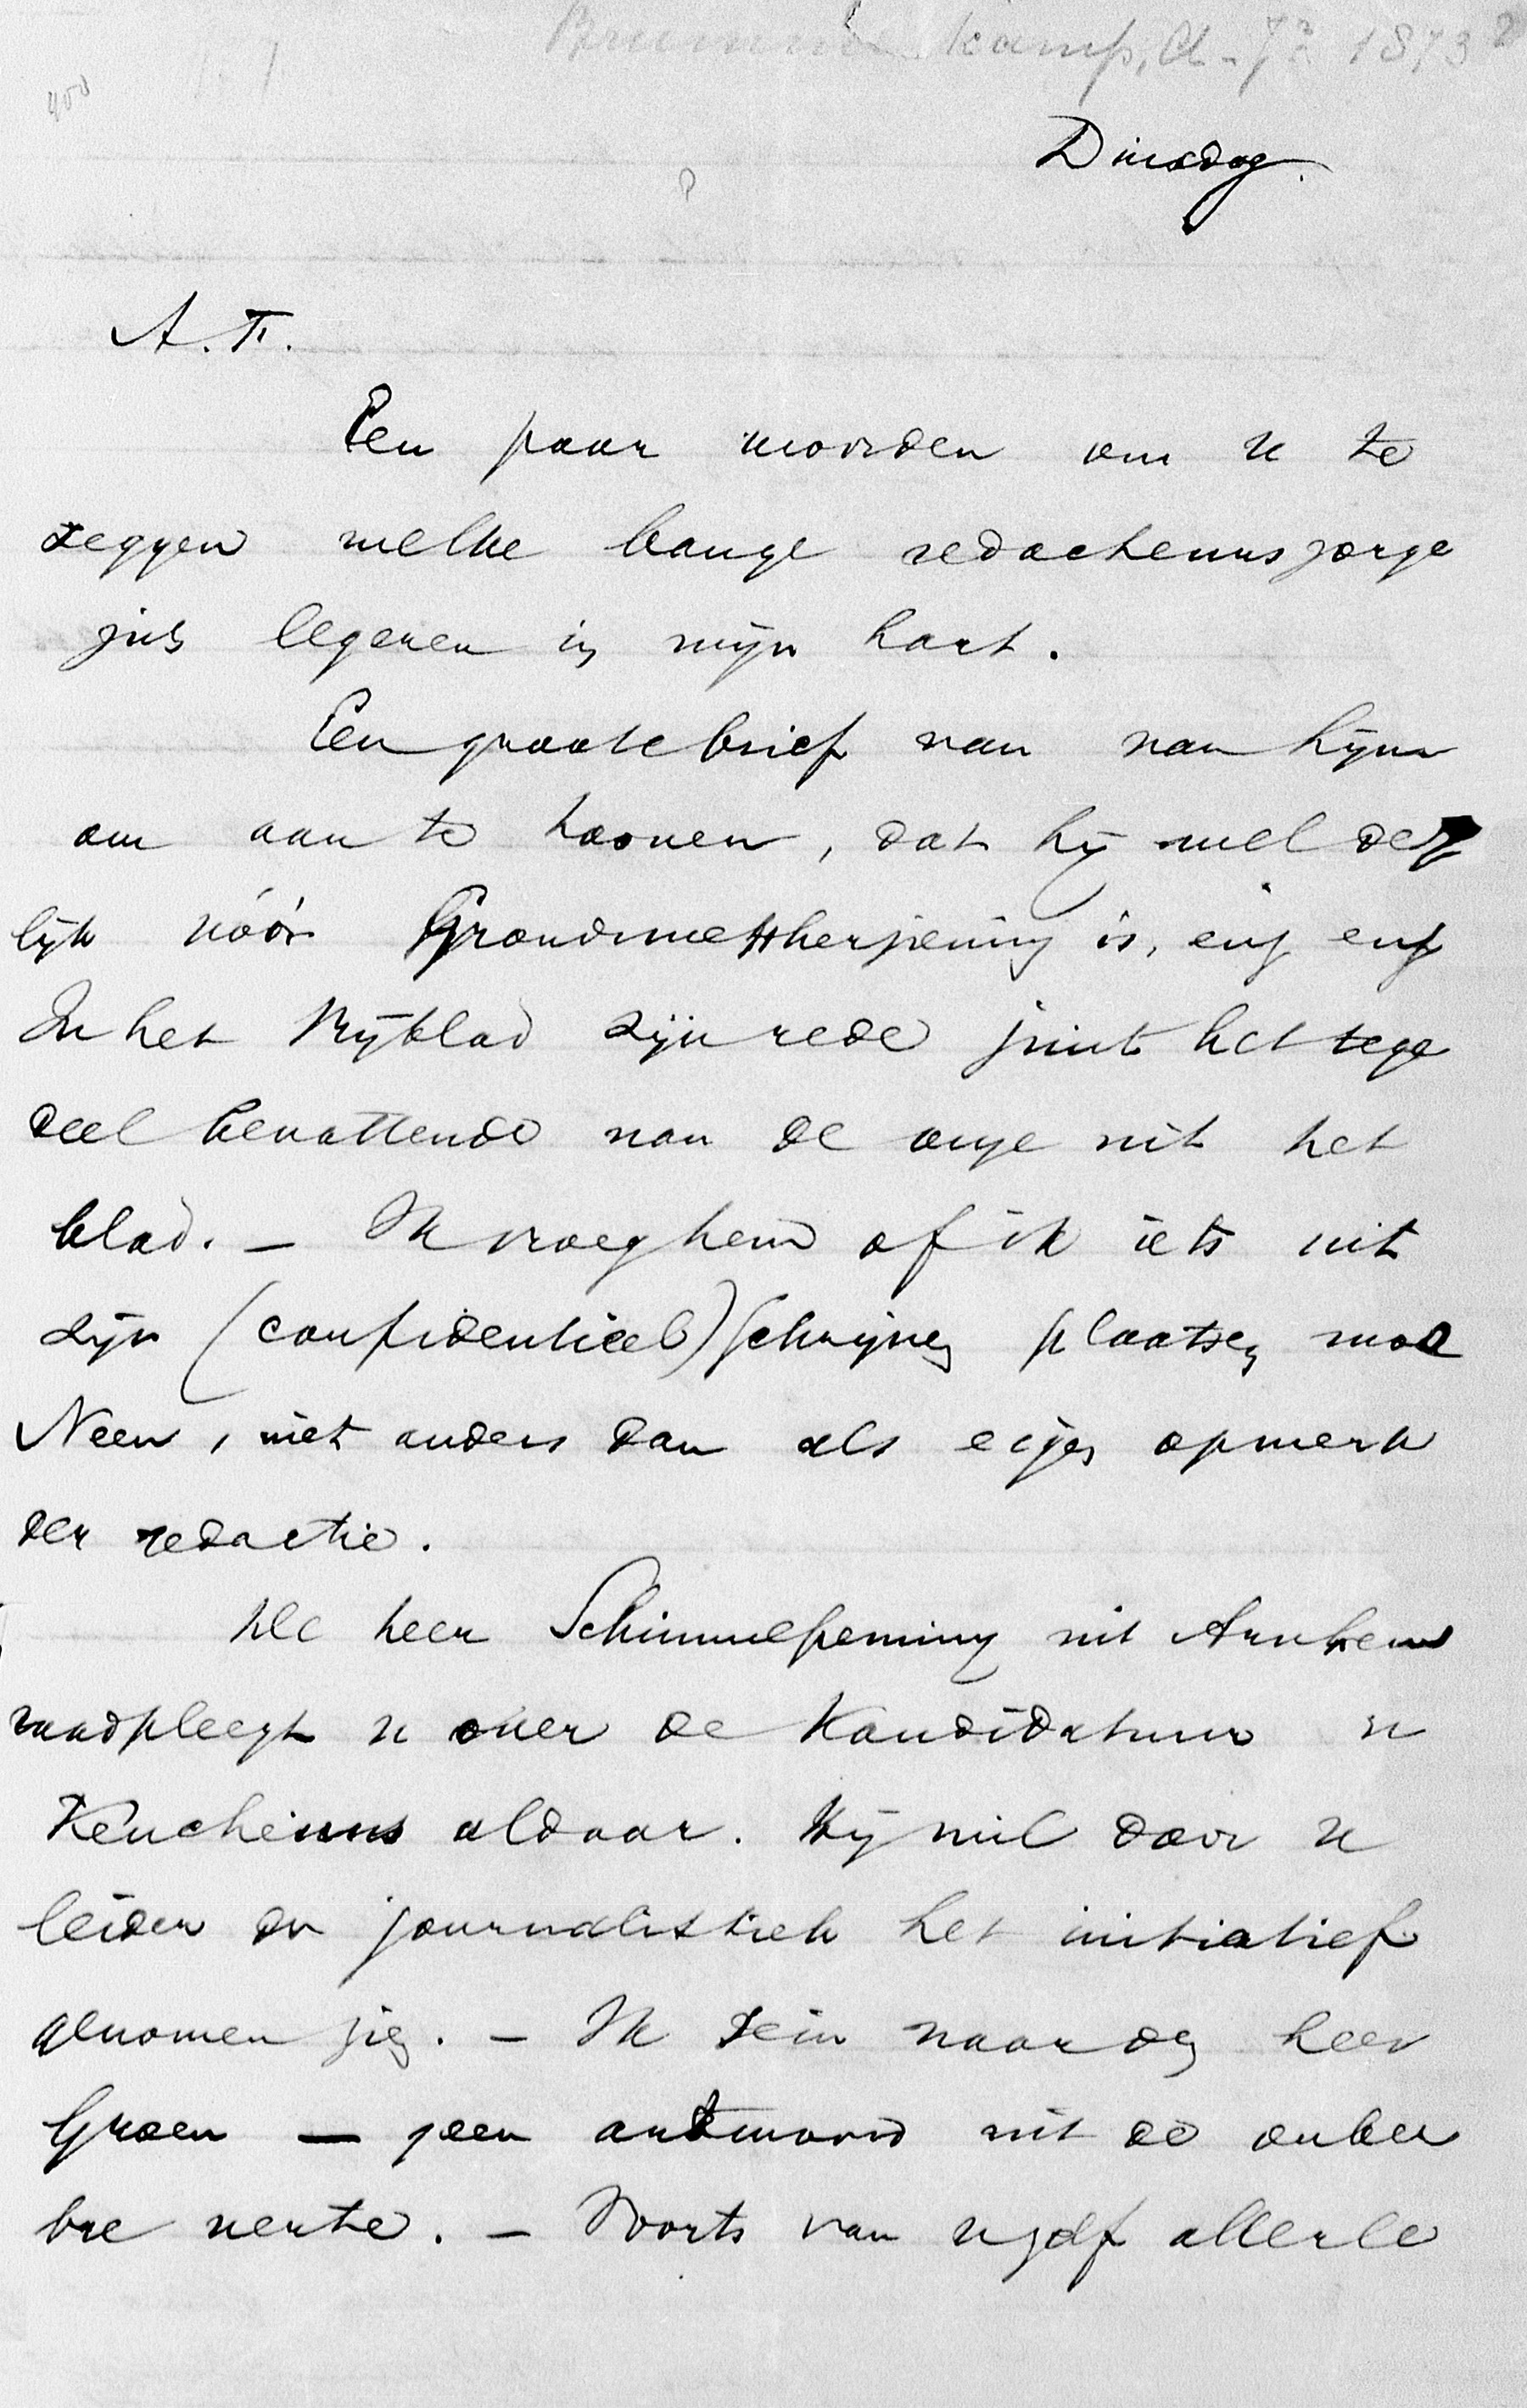 Brummelkamp, A. Jr. 1873
400
Dinsdag.
A. F.
Een paar woorden om u te
zeggen welke bange redacteurszorge
juist legeren in mijn hart.
Een groote brief van van Lijnn
om aan te toonen, dat hij wel deg
lijk vóór Grondwetsherziening is, enz enz
In het Bijblad zijn rede juist het tege
deel bevattende van de onze uit het
blad. — Ik vroeg hem of ik iets uit
zijn (confidentieel) schrijven plaatsen moe
Neen, niet anders dan als eigen opmerk
der redactie.
De heer Schimmelpenning uit Arnhem
raadpleegt u over de Kandidatuur v
Keuchenius aldaar. Hij wil door u
leider der journalistiek het initiatief
genomen zien. — Ik zein naar den heer
Groen — geen antwoord uit de onbe
bre verte. — Voorts van uzelf allerle